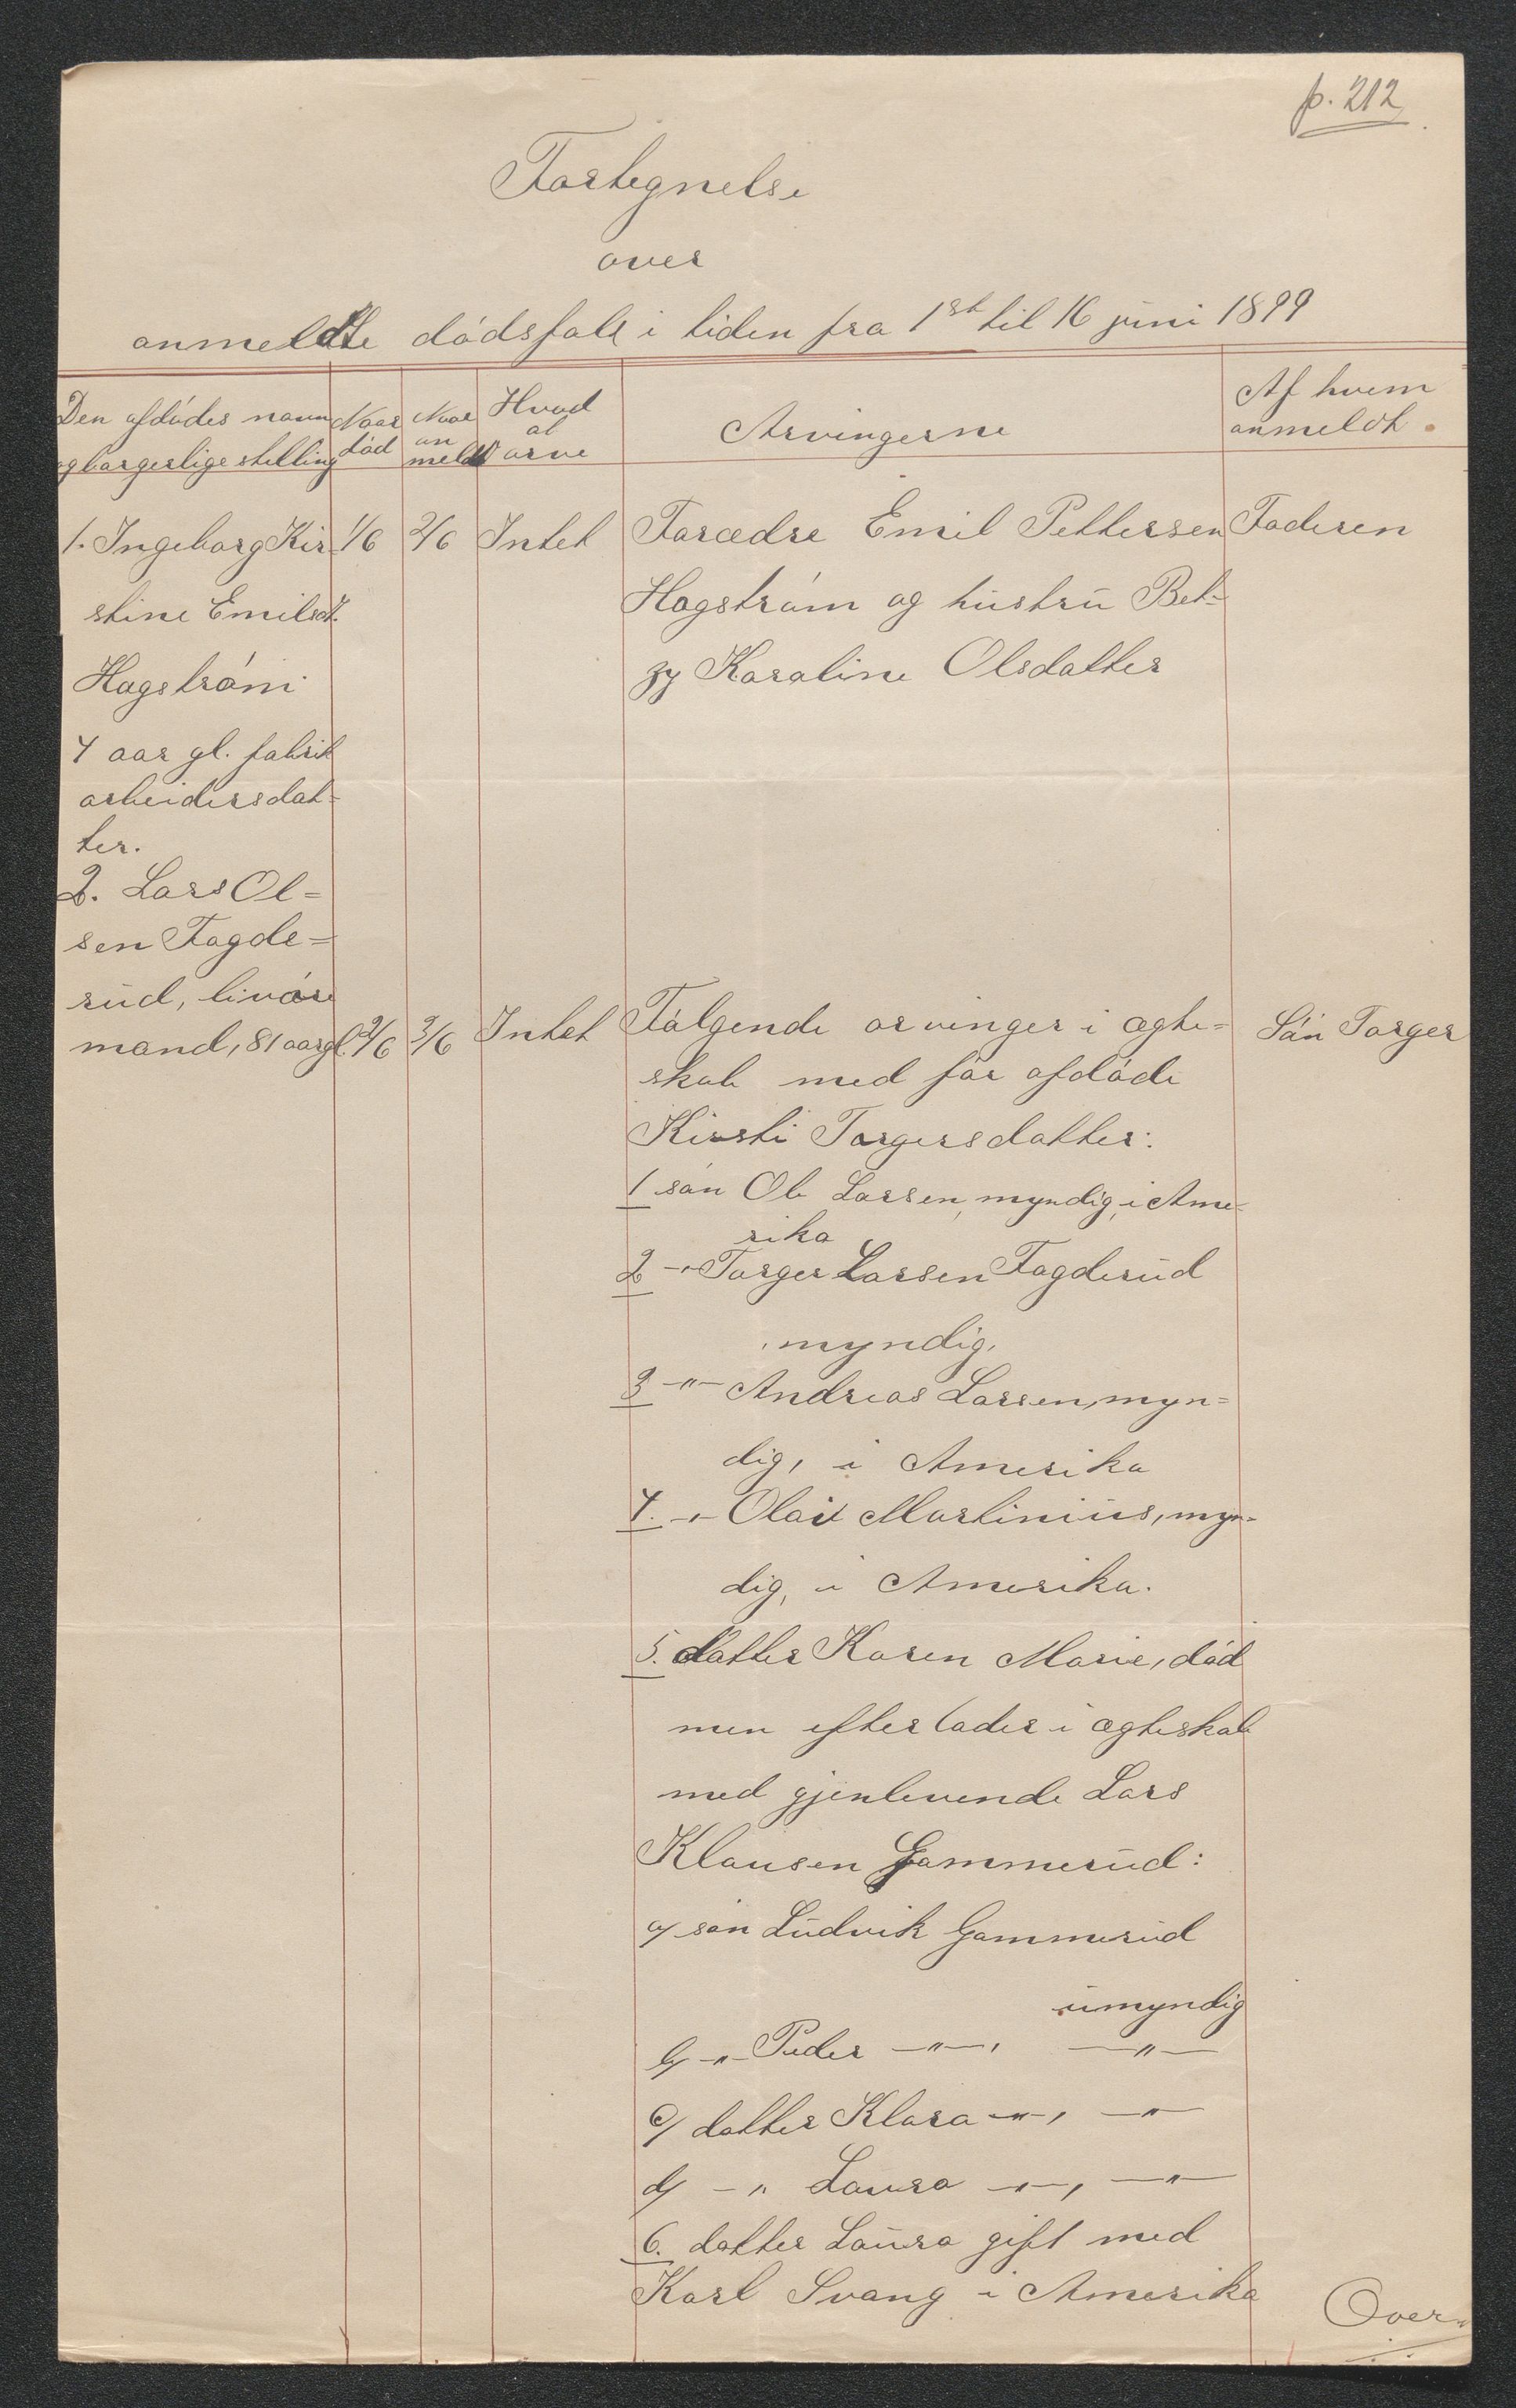 p. 212
Fortegnelse
over
anmeldte dödsfald i tiden fra 1ste til 16 juni 1899
Den afdödes navn og borgerlige stilling
Naar död
Naar anmeldt
Hvad at arve
Arvingerne
Af hvem anmeldt.
1. Ingeborg Kir- 1/6 2/6 Intet Forædre Emil Pettersen Faderen
stine Emilsd. Hagström og hustru Bet=
Hagström zy Karoline Olsdatter
4 aar gl. fabrik
arbeidersdat=
ter.
2. Lars Ol=
sen Fagde=
rud, livöre
mand, 81 aar gl. 2/6 3/6 Intet Fölgende arvinger i ægte= Sön Torger
skab med før afdöde
Kirsti Torgersdatter:
1 sön Ole Larsen, myndig, i Ame-
rika
2 -"- Torger Larsen Fagderud
myndig.
3 -"- Andreas Larsen, myn=
dig, i Amerika
4. -"- Olai Martinius, myn=
dig, i Amerika.
5. datter Karen Marie, död
men efterlader i ægteskab
med gjenlevende Lars
Klausen Gammerud:
a/ sön Ludvik Gammerud
umyndig
b/ -"- Peder -"-, -"-
c/ datter Klara -"-, -"-
d/ -"- Laura -"-, -"-
6. datter Laura gift med
Karl Svang i Amerika
Over